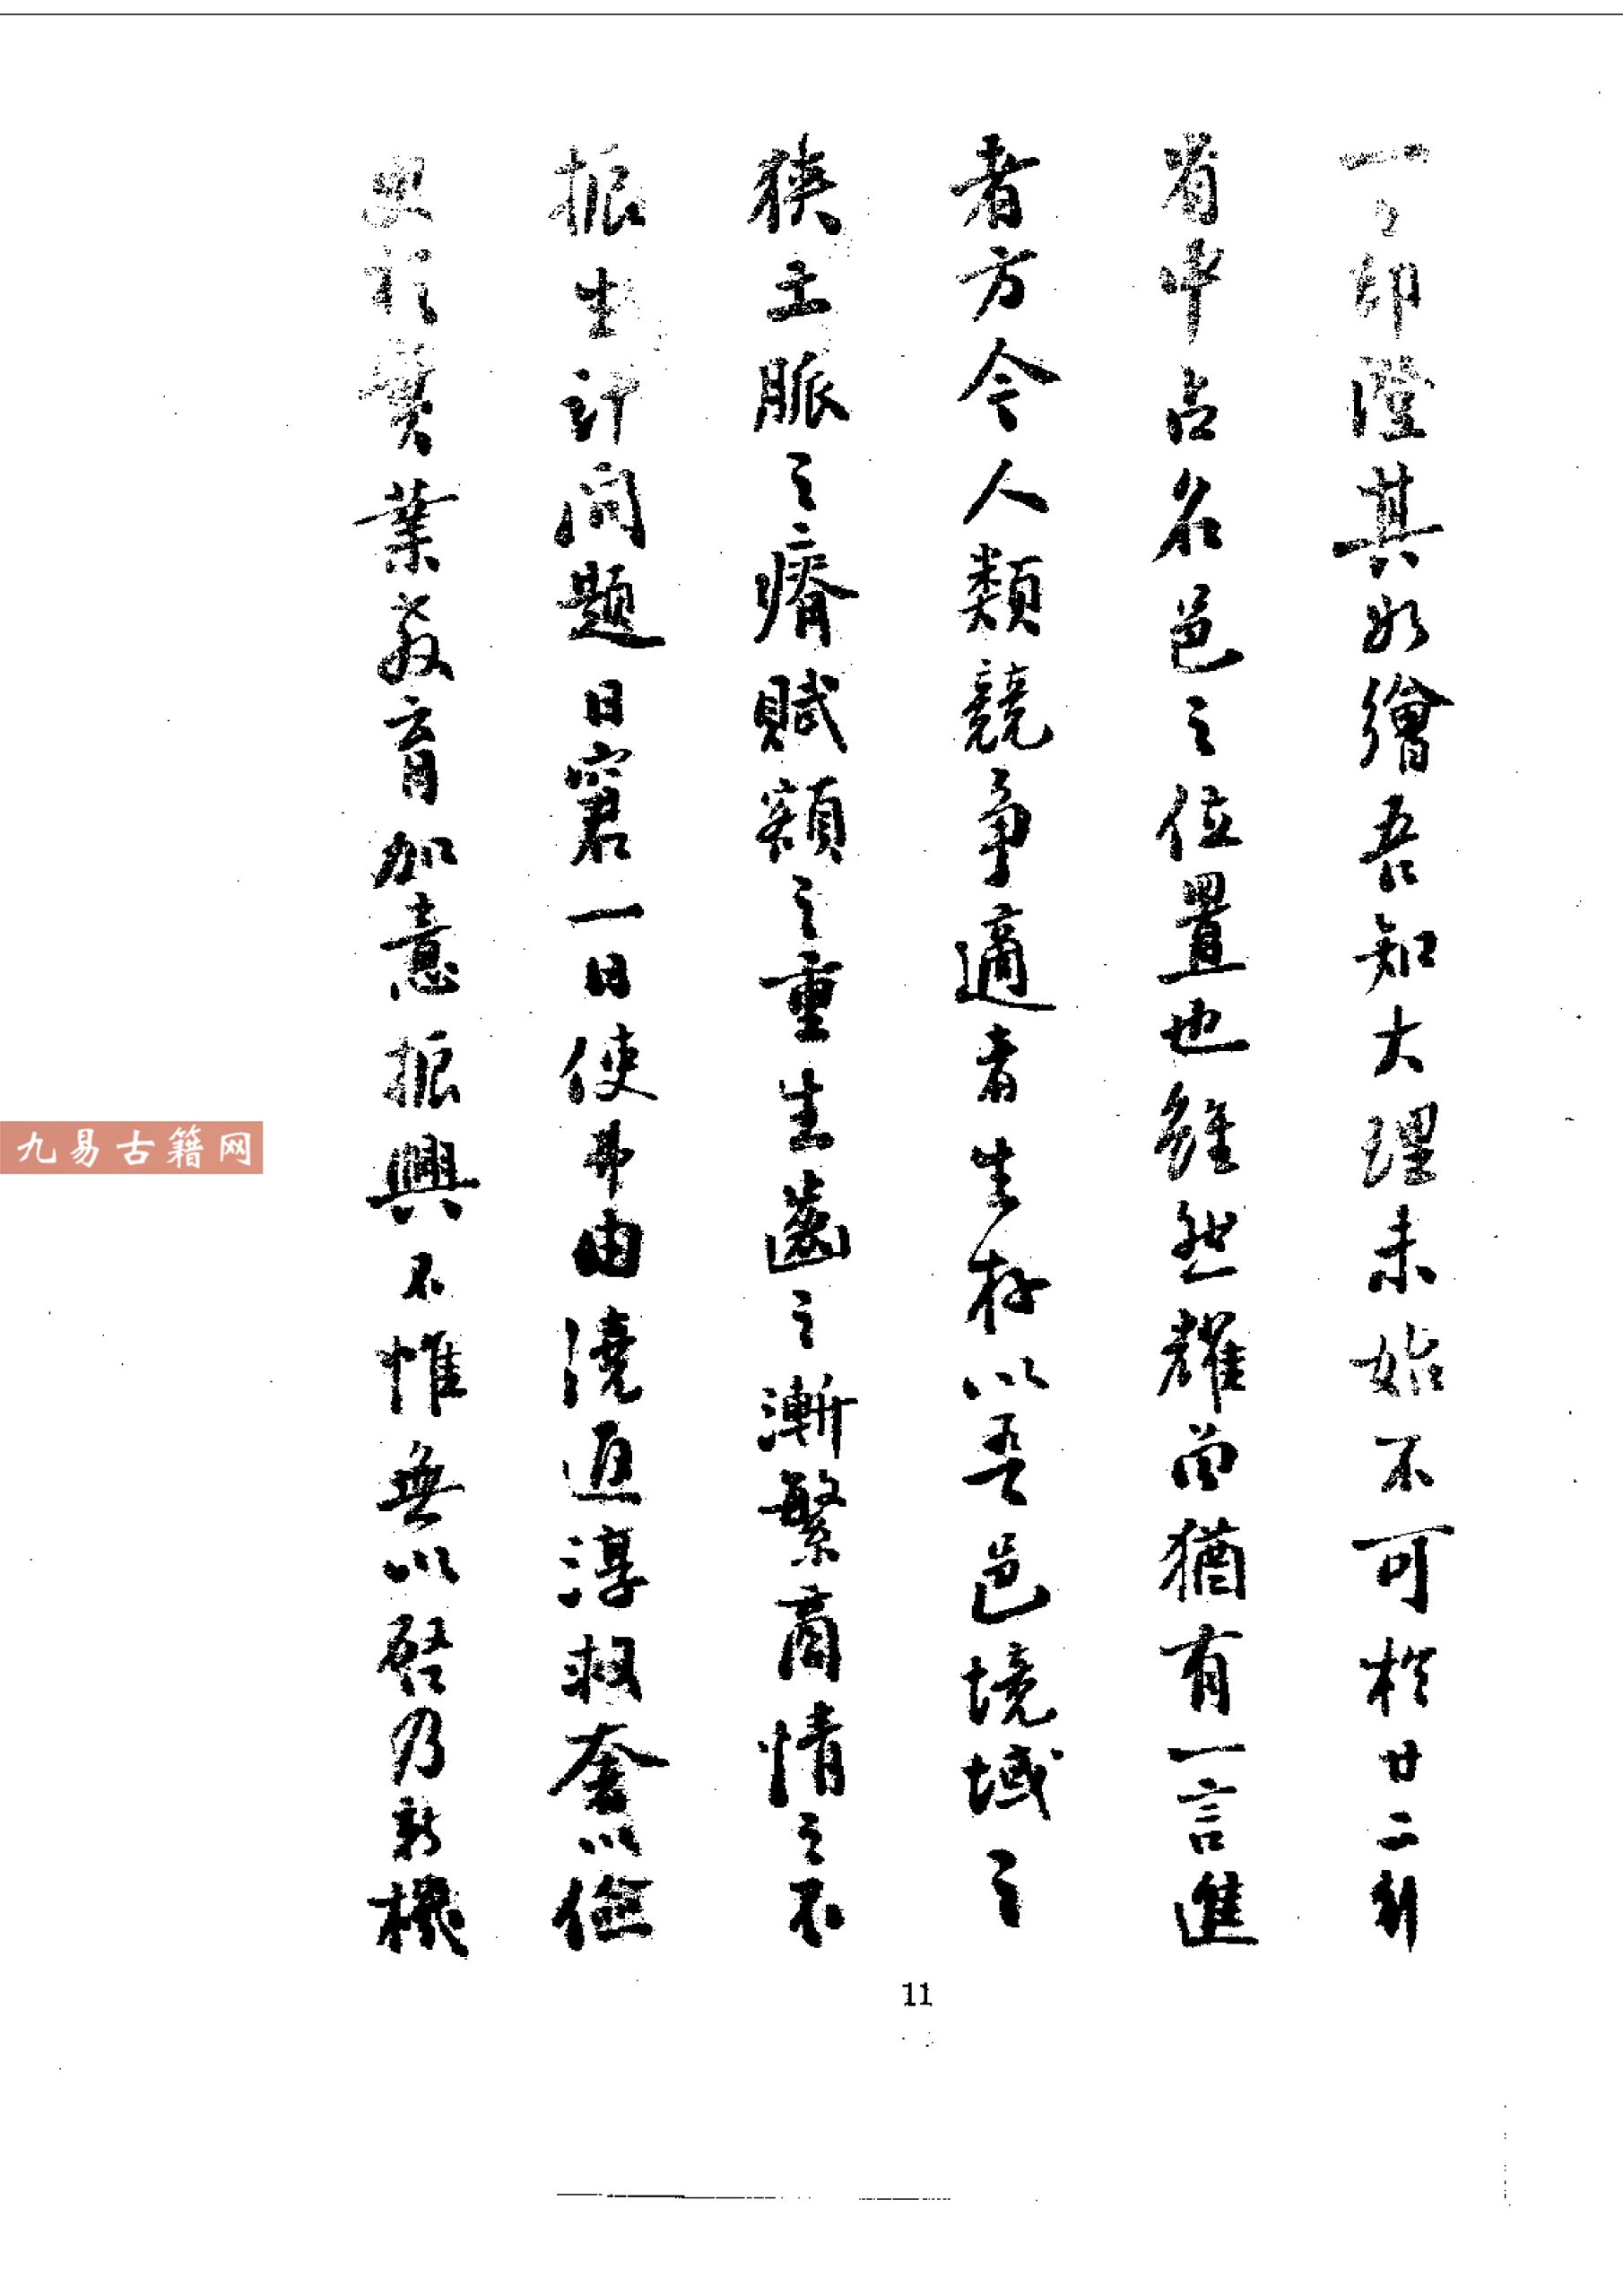 一々印證其如繪吾知大理未始不可於廿二行
省中占名邑之位置也雖然耀曾猶有一言進
者方今人類競爭適者生存以吾邑境域之
狹土脈之瘠賦額之重生齒之漸繁商情之不
振生計問題日窘一日使弗由澆返淳救奢以儉
更於實業教育加意振興不惟無以啓乃新機
11
九易古籍网